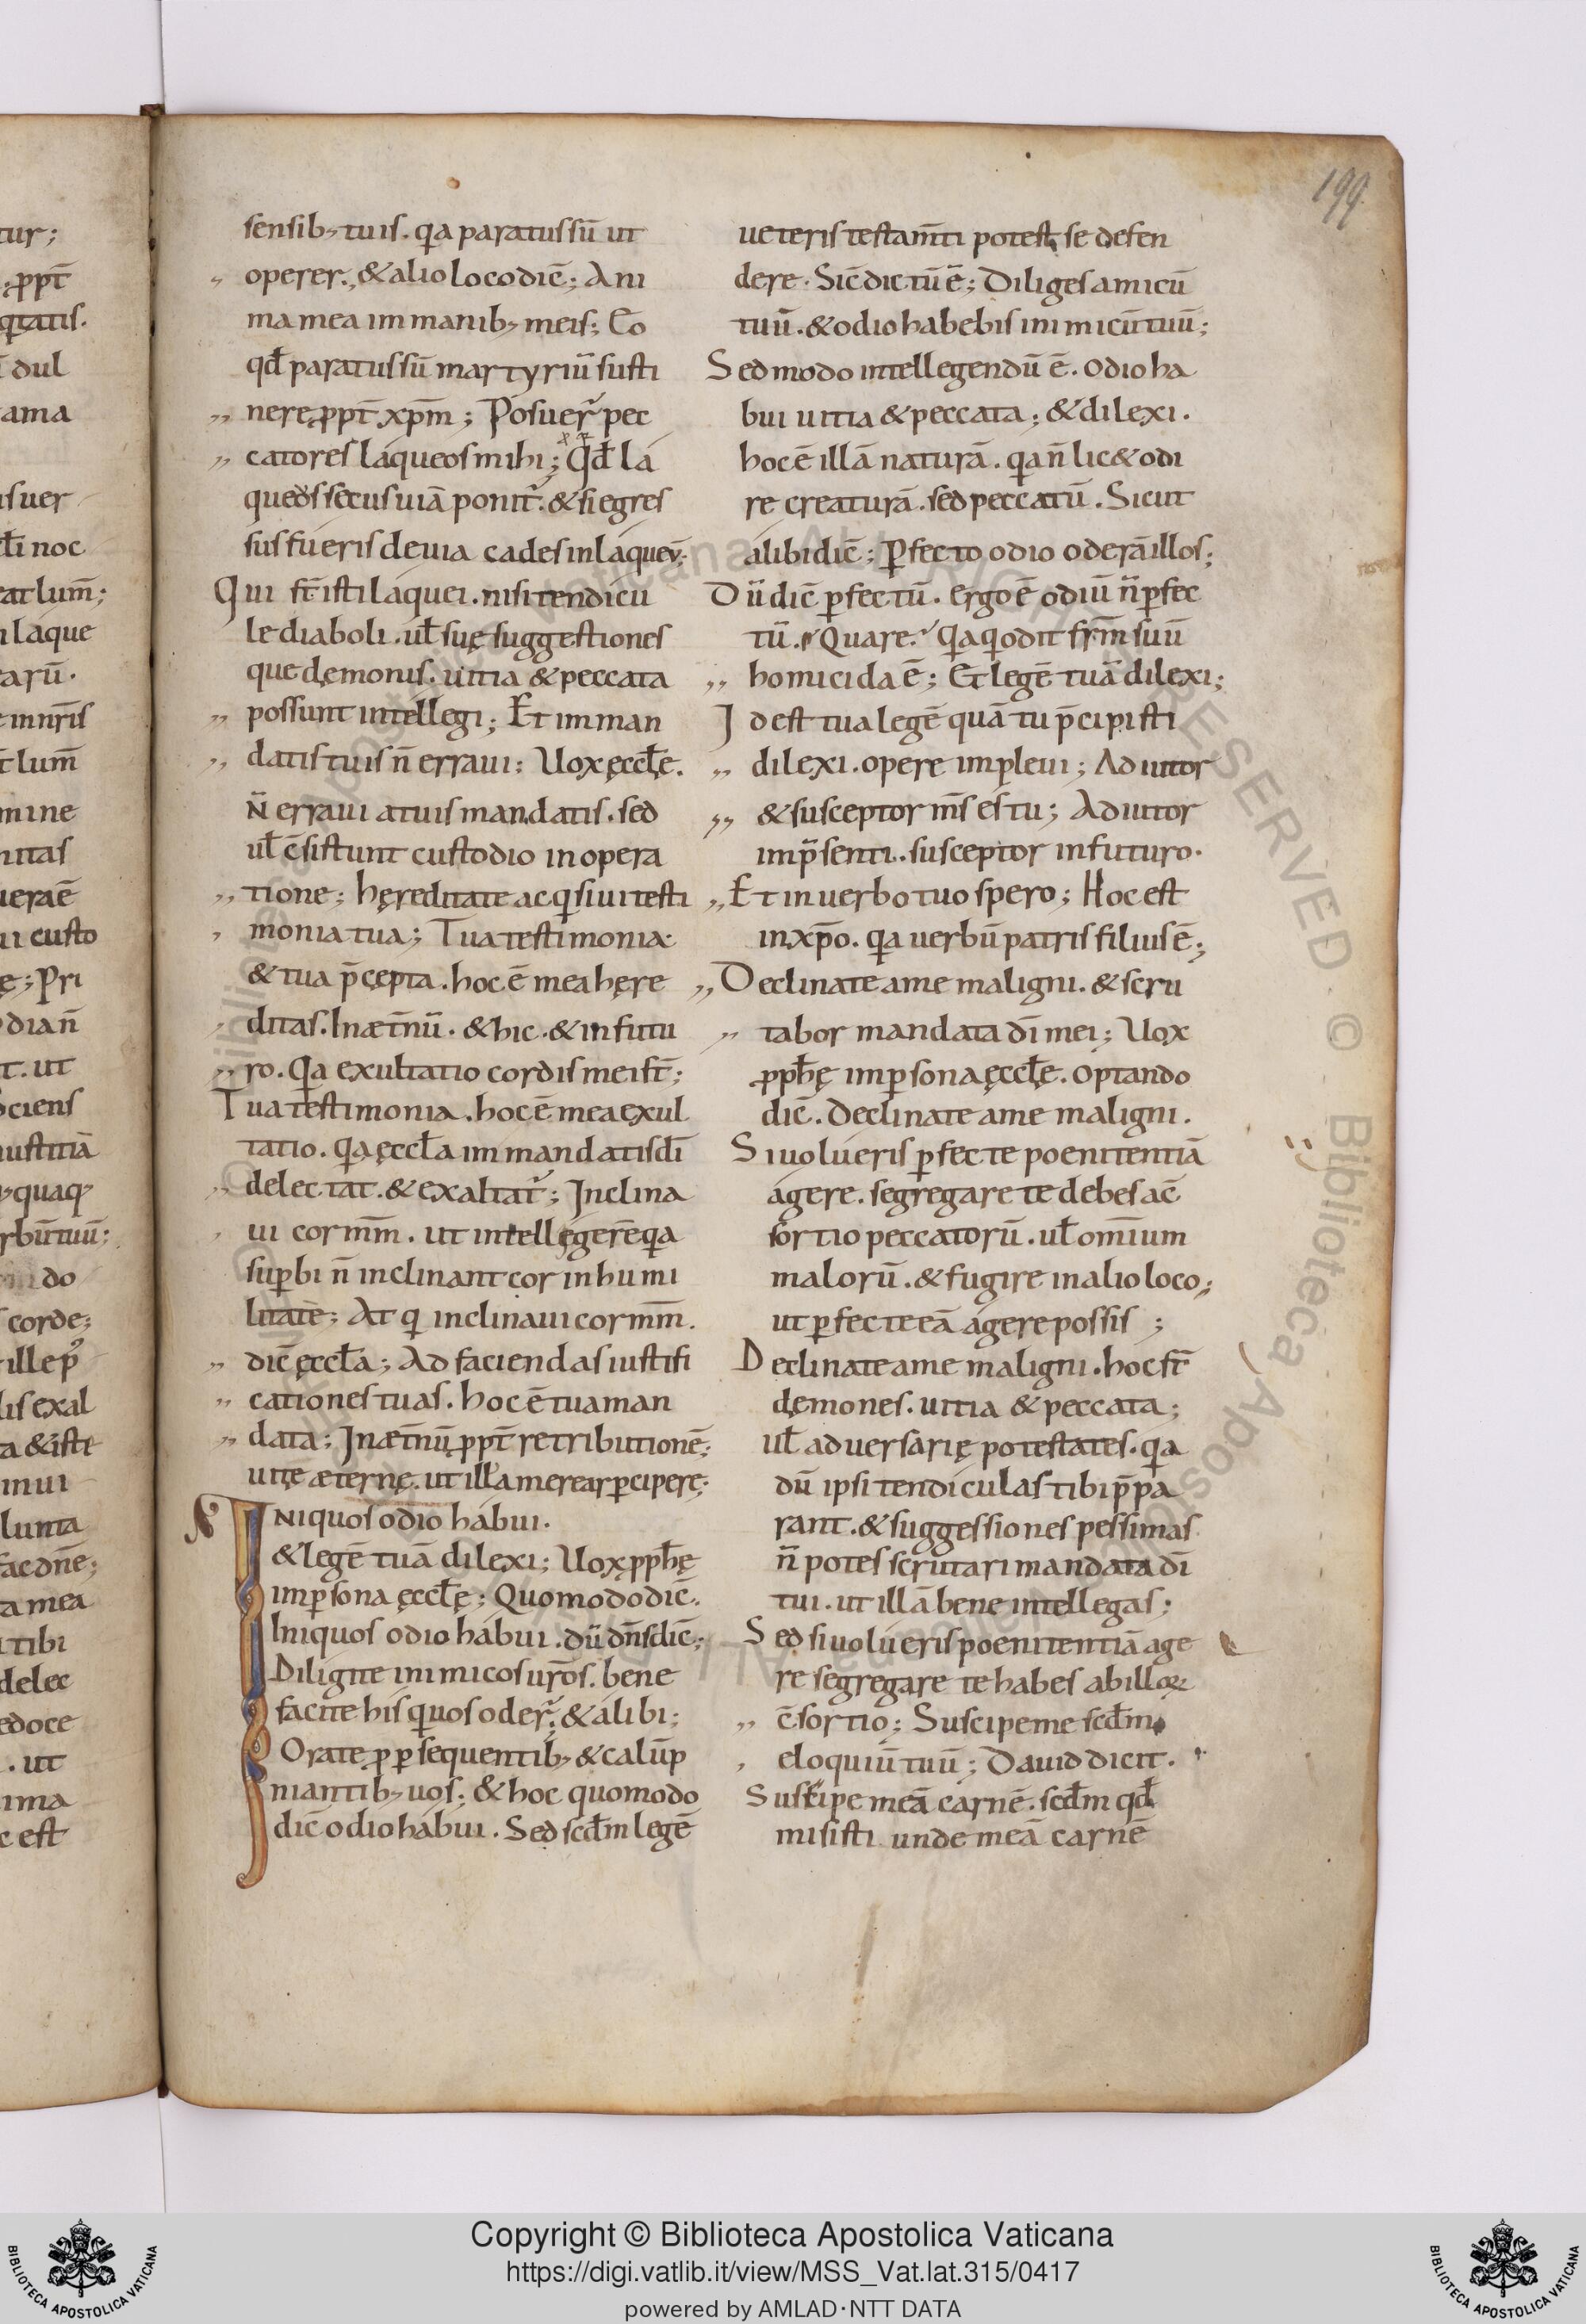 199
sensib; tuis. qa paratus sū ut
operer., & alio loco dic̄; Ani
ma mea im manib; meis; Eo
qđ paratus sū martyriū susti
nere ꝓpt̄ xp̄m; Posuer̄ pec
catores laqueos mihi; Qđ la
queos secus uiā ponit̄. & si egres
sus fueris de uia cades in laqueū;
Qui st̄ isti laquei. nisi tendicu
le diaboli. ul̄ suę suggestiones
que demonis. uitia & peccata
possunt intellegi; Et im man
datis tuis n̄ erraui; Uox ęccl̄ę.
N̄ erraui a tuis mandatis. sed
ul̄ c̄sistunt custodio in opera
tione; hęreditate acq̇siui testi
monia tua; Tua testimonia
& tua p̄cepta. hoc ē mea hęre
ditas. In æt̄nū. & hic. & in futu
ro. Qa exultatio cordis mei st̄;
Tua testimonia. hoc ē mea exul
tatio. qa ęccl̄a im mandatis dī
delectat̄. & exaltat̄; Inclina
ui cor mm̄. ut intellegerē qa
suꝑbi n̄ inclinant cor in humi
litatē; At q̇ inclinaui cor mm̄.
dic̄ ęccl̄a; Ad faciendas iustifi
cationes tuas. hoc ē tua man
data; In æt̄nū ꝓpt̄ retributionē;
uitę æternę. ut illa merear ꝑcipere;
INiquos odio habui.
& legē tuā dilexi; Uox ꝓph̄ę
im ꝑsona ęccl̄ę; Quomodo dic̄.
Iniquos odio habui. dū dn̄s dic̄;
Diligite inimicos uros̄. bene
facite his q̇ uos oder̄. & alibi;
Orate ꝓ ꝑsequentib; & calūp
niantib; uos; & hoc quomodo
dic̄ odio habui. Sed scd̄m legē
ueteris testam̄ti potest se defen
dere. Sic̄ dictū ē; Diliges amicū
tuū. & odio habebis inimicū tuū;
Sed modo intellegendū ē. Odio ha
bui uitia & peccata; & dilexi.
hoc ē illā naturā. qa n̄ lic& odi
re creaturā. sed peccatū. Sicut
alibi dic̄; Ꝑfecto odio oderā illos;
Dū dic̄ ꝑfectū. ergo ē odiū n̄ ꝑfec
tū. Quare. Qa q̇ odit frm̄ suū
homicida ē; Et legē tuā dilexi;
Id est tua legē quā tu p̄cipisti
dilexi. opere impleui; Adiutor
& susceptor ms̄ es tu; Adiutor
im p̄senti.. susceptor in futuro.
Et in uerbo tuo spero; Hoc est
in xp̄o. qa uerbū patris filius ē;
Declinate a me maligni. & scru
tabor mandata dī mei; Uox
ꝓph̄ę im ꝑsona ęccl̄ę. optando
dic̄. Declinate a me maligni.
Si uolueris ꝑfecte poenitentiā
agere. segregare te debes a c̄
sortio peccatorū. ul̄ om̄ium
malorū. & fugire in alio loco;
ut ꝑfecte eā agere possis;
Declinate a me maligni. hoc st̄
demones. uitia & peccata;
ul̄ aduersarię potestates. qa
dū ipsi tendiculas tibi p̄pa
rant. & suggessiones pessimas
n̄ potes scrutari mandata dī
tui. ut illā bene intellegas;
Sed si uolueris poenitentiā age
re segregare te habes ab illoꝝ
c̄sortio; Suscipe me scd̄m
eloquiū tuū; Dauid dicit.
Suscipe meā carnē. scd̄m qđ
misisti unde meā carnē
Copyright © Biblioteca Apostolica Vaticana
https://digi.vatlib.it/view/MSS_Vat.lat.315/0417
powered by AMLAD·NTT DATA